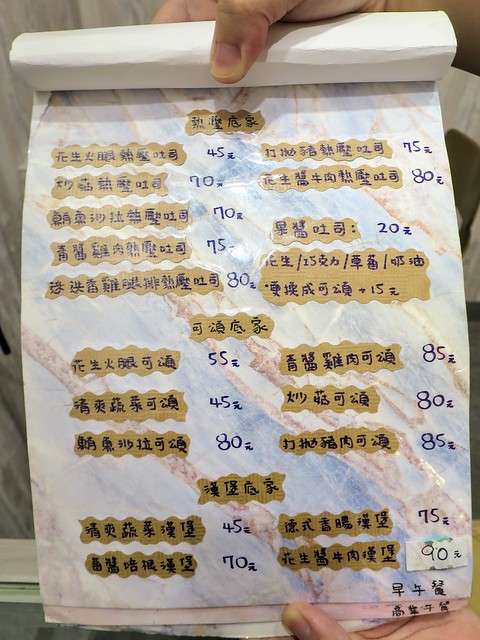 熱壓底家
花生火腿熱壓吐司 45元
炒菇熱壓吐司 70元
鮪魚沙拉熱壓吐司 70元
青醬雞肉熱壓吐司 75-
迷迭香雞腿排熱壓吐司 80元
打拋豬熱壓吐司 75元
花生醬牛肉熱壓吐司 80元
果醬吐司: 20元
花生/巧克力/草莓/奶油
*變換成可頌+15元
可頌底家
花生火腿可頌 55元
清爽蔬菜可頌 45元
鮪魚沙拉可頌 80元
青醬雞肉可頌 85元
炒菇可頌 80元
打拋豬肉可頌 85元
漢堡底家
清爽蔬菜漢堡 45元
漢堡 70元
德式香腸漢堡 75元
花生醬牛肉漢堡 90元
早午餐
午餐